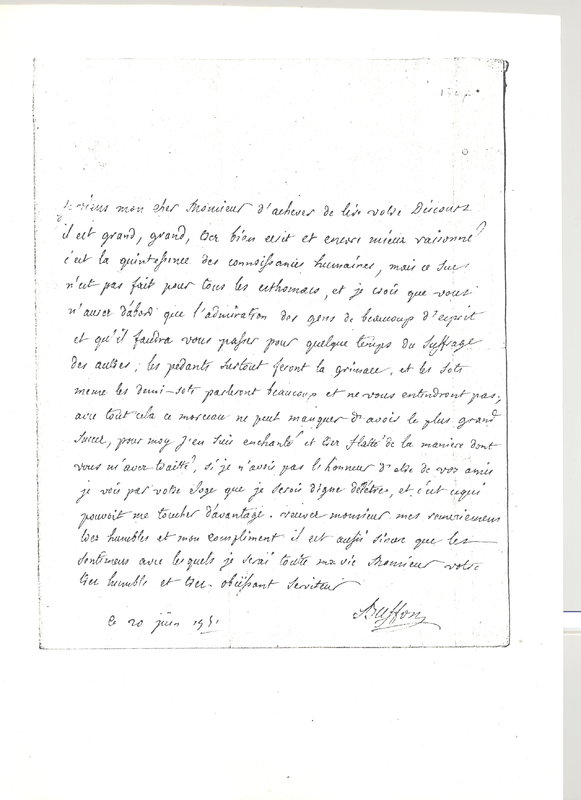 je viens mon cher Monsieur d'achever de lire votre Discours
il est grand, grand, tres bien ecrit et encore mieux raisonné
c'est la quintessence des connoissances humaines, mais ce suc
n'est pas fait pour tous les esthomacs, et je crois que vous
n'aurez d'abord que l'admiration des gens de beaucoup d'esprit
et qu'il faudra vous passer pour quelque temps du suffrage
des autres; les pedants surtout feront la grimace, et les sots
meme les demi-sots parleront beaucoup et ne vous entendront pas;
avec tout cela ce morceau ne peut manquer d'avoir le plus grand
succez, pour moy j'en suis enchanté et tres flatté de la maniere dont
vous m'avez traitté, si je n'avois pas l'honneur d'etre de vos amis
je vois par votre Eloge que je serois digne de l'etre, et c'est ce qui
pouvoit me toucher d'avantage. recevez monsieur mes remerciemens
tres humbles et mon compliment il est aussi sincere que les
sentimens avec lesquels je serai toute ma vie Monsieur votre
tres humble et tres obeissant serviteur
Buffon
le 20 juin 1751